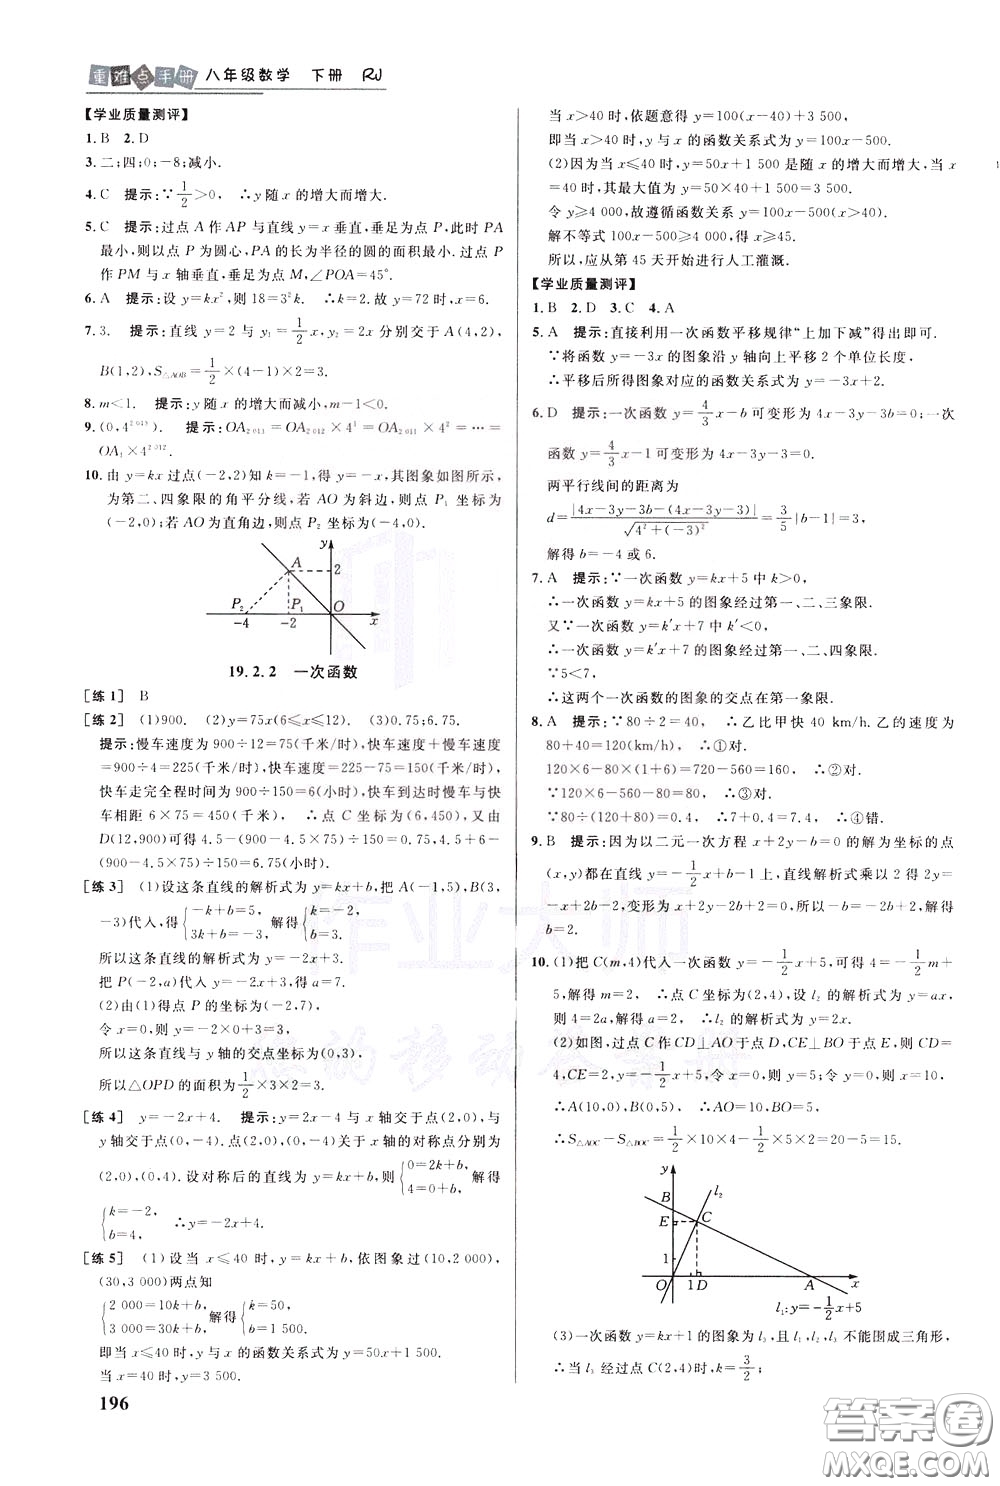 重难点手册 八年级数学 下册 RJ
【学业质量测评】
1. B 2. D
3. 二;四;0;-8;减小.
4. C 提示:∵1/2>0, ∴y随x的增大而增大.
5. C 提示:过点A作AP与直线y=x垂直,垂足为点P,此时PA
最小,则以点P为圆心,PA的长为半径的圆的面积最小.过点P
作PM与x轴垂直,垂足为点M,∠POA=45°.
6. A 提示:设y=kx²,则18=3²k. ∴k=2.故当y=72时,x=6.
7. 3. 提示:直线y=2与y₁=1/2x,y₂=2x分别交于A(4,2),
B(1,2),S△AOB=1/2×(4-1)×2=3.
8. m<1. 提示:y随x的增大而减小,m-1<0.
9. (0,4^2013). 提示:OA2013=OA2012×4¹=OA2011×4²=⋯=
OA₁×4^2012.
10. 由y=kx过点(-2,2)知k=-1,得y=-x,其图象如图所示,
为第二、四象限的角平分线,若AO为斜边,则点P₁坐标为
(-2,0);若AO为直角边,则点P₂坐标为(-4,0).
y
A
2
P₂
P₁
O
-4
-2
x
19.2.2 一次函数
[练1] B
[练2] (1)900. (2)y=75x(6≤x≤12). (3)0.75;6.75.
提示:慢车速度为900÷12=75(千米/时),快车速度+慢车速度
=900÷4=225(千米/时),快车速度=225-75=150(千米/时),
快车走完全程时间为900÷150=6(小时),快车到达时慢车与快
车相距6×75=450(千米), ∴点C坐标为(6,450),又由
D(12,900)可得4.5-(900-4.5×75)÷150=0.75,4.5+6-
(900-4.5×75)÷150=6.75(小时).
[练3] (1)设这条直线的解析式为y=kx+b,把A(-1,5),B(3,
-3)代入,得{-k+b=5, 3k+b=-3. 解得{k=-2, b=3.
所以这条直线的解析式为y=-2x+3.
把P(-2,a)代入y=-2x+3,得a=7.
(2)由(1)得点P的坐标为(-2,7),
令x=0,则y=-2×0+3=3,
所以这条直线与y轴的交点坐标为(0,3),
所以△OPD的面积为1/2×3×2=3.
[练4] y=-2x+4. 提示:y=2x-4与x轴交于点(2,0),与
y轴交于点(0,-4).点(2,0),(0,-4)关于x轴的对称点分别为
(2,0),(0,4).设对称后的直线为y=kx+b,则{0=2k+b, 4=0+b. 解得
{k=-2, b=4. ∴y=-2x+4.
[练5] (1)设当x≤40时,y=kx+b,依图象过(10,2 000),
(30,3 000)两点知
{2 000=10k+b, 3 000=30k+b. 解得{k=50, b=1 500.
即当x≤40时,y与x的函数关系式为y=50x+1 500.
当x=40时,y=3 500.
196
当x>40时,依题意得y=100(x-40)+3 500,
即当x>40时,y与x的函数关系式为y=100x-500.
(2)因为当x≤40时,y=50x+1 500是随x的增大而增大,当x
=40时,其最大值为y=50×40+1 500=3 500.
令y≥4 000,故遵循函数关系y=100x-500(x>40).
解不等式100x-500≥4 000,得x≥45.
所以,应从第45天开始进行人工灌溉.
【学业质量测评】
1. B 2. D 3. C 4. A
5. A 提示:直接利用一次函数平移规律“上加下减”得出即可.
∵将函数y=-3x的图象沿y轴向上平移2个单位长度,
∴平移后所得图象对应的函数关系式为y=-3x+2.
6. D 提示:一次函数y=4/3x-b可变形为4x-3y-3b=0;一次
函数y=4/3x-1可变形为4x-3y-3=0.
两平行线间的距离为
d=|4x-3y-3b-(4x-3y-3)|/√(4²+(-3)²)=3/5|b-1|=3,
解得b=-4或6.
7. A 提示:∵一次函数y=kx+5中k>0,
∴一次函数y=kx+5的图象经过第一、二、三象限.
又∵一次函数y=k′x+7中k′<0,
∴一次函数y=k′x+7的图象经过第一、二、四象限.
∵5<7,
∴这两个一次函数的图象的交点在第一象限.
8. A 提示:∵80÷2=40, ∴乙比甲快40 km/h.乙的速度为
80+40=120(km/h), ∴①对.
120×6-80×(1+6)=720-560=160, ∴②对.
∵120×6-560-80=80, ∴③对.
∵80÷(120+80)=0.4, ∴7+0.4=7.4, ∴④错.
9. B 提示:因为以二元一次方程x+2y-b=0的解为坐标的点
(x,y)都在直线y=-1/2x+b-1上,直线解析式乘以2得2y=
-x+2b-2,变形为x+2y-2b+2=0,所以-b=-2b+2,解得
b=2.
10. (1)把C(m,4)代入一次函数y=-1/2x+5,可得4=-1/2m+
5,解得m=2, ∴点C坐标为(2,4),设l₂的解析式为y=ax,
则4=2a,解得a=2, ∴l₂的解析式为y=2x.
(2)如图,过点C作CD⊥AO于点D,CE⊥BO于点E,则CD=
4,CE=2,y=-1/2x+5,令x=0,则y=5;令y=0,则x=10,
∴A(10,0),B(0,5), ∴AO=10,BO=5,
∴S△AOC-S△BOC=1/2×10×4-1/2×5×2=20-5=15.
y
l₂
B
E
C
1
O
1
D
A
x
l₁:y=-1/2x+5
(3)一次函数y=kx+1的图象为l₃,且l₁,l₂,l₃不能围成三角形,
∴当l₃经过点C(2,4)时,k=3/2;
作业大师
答案卷
MXQE.COM